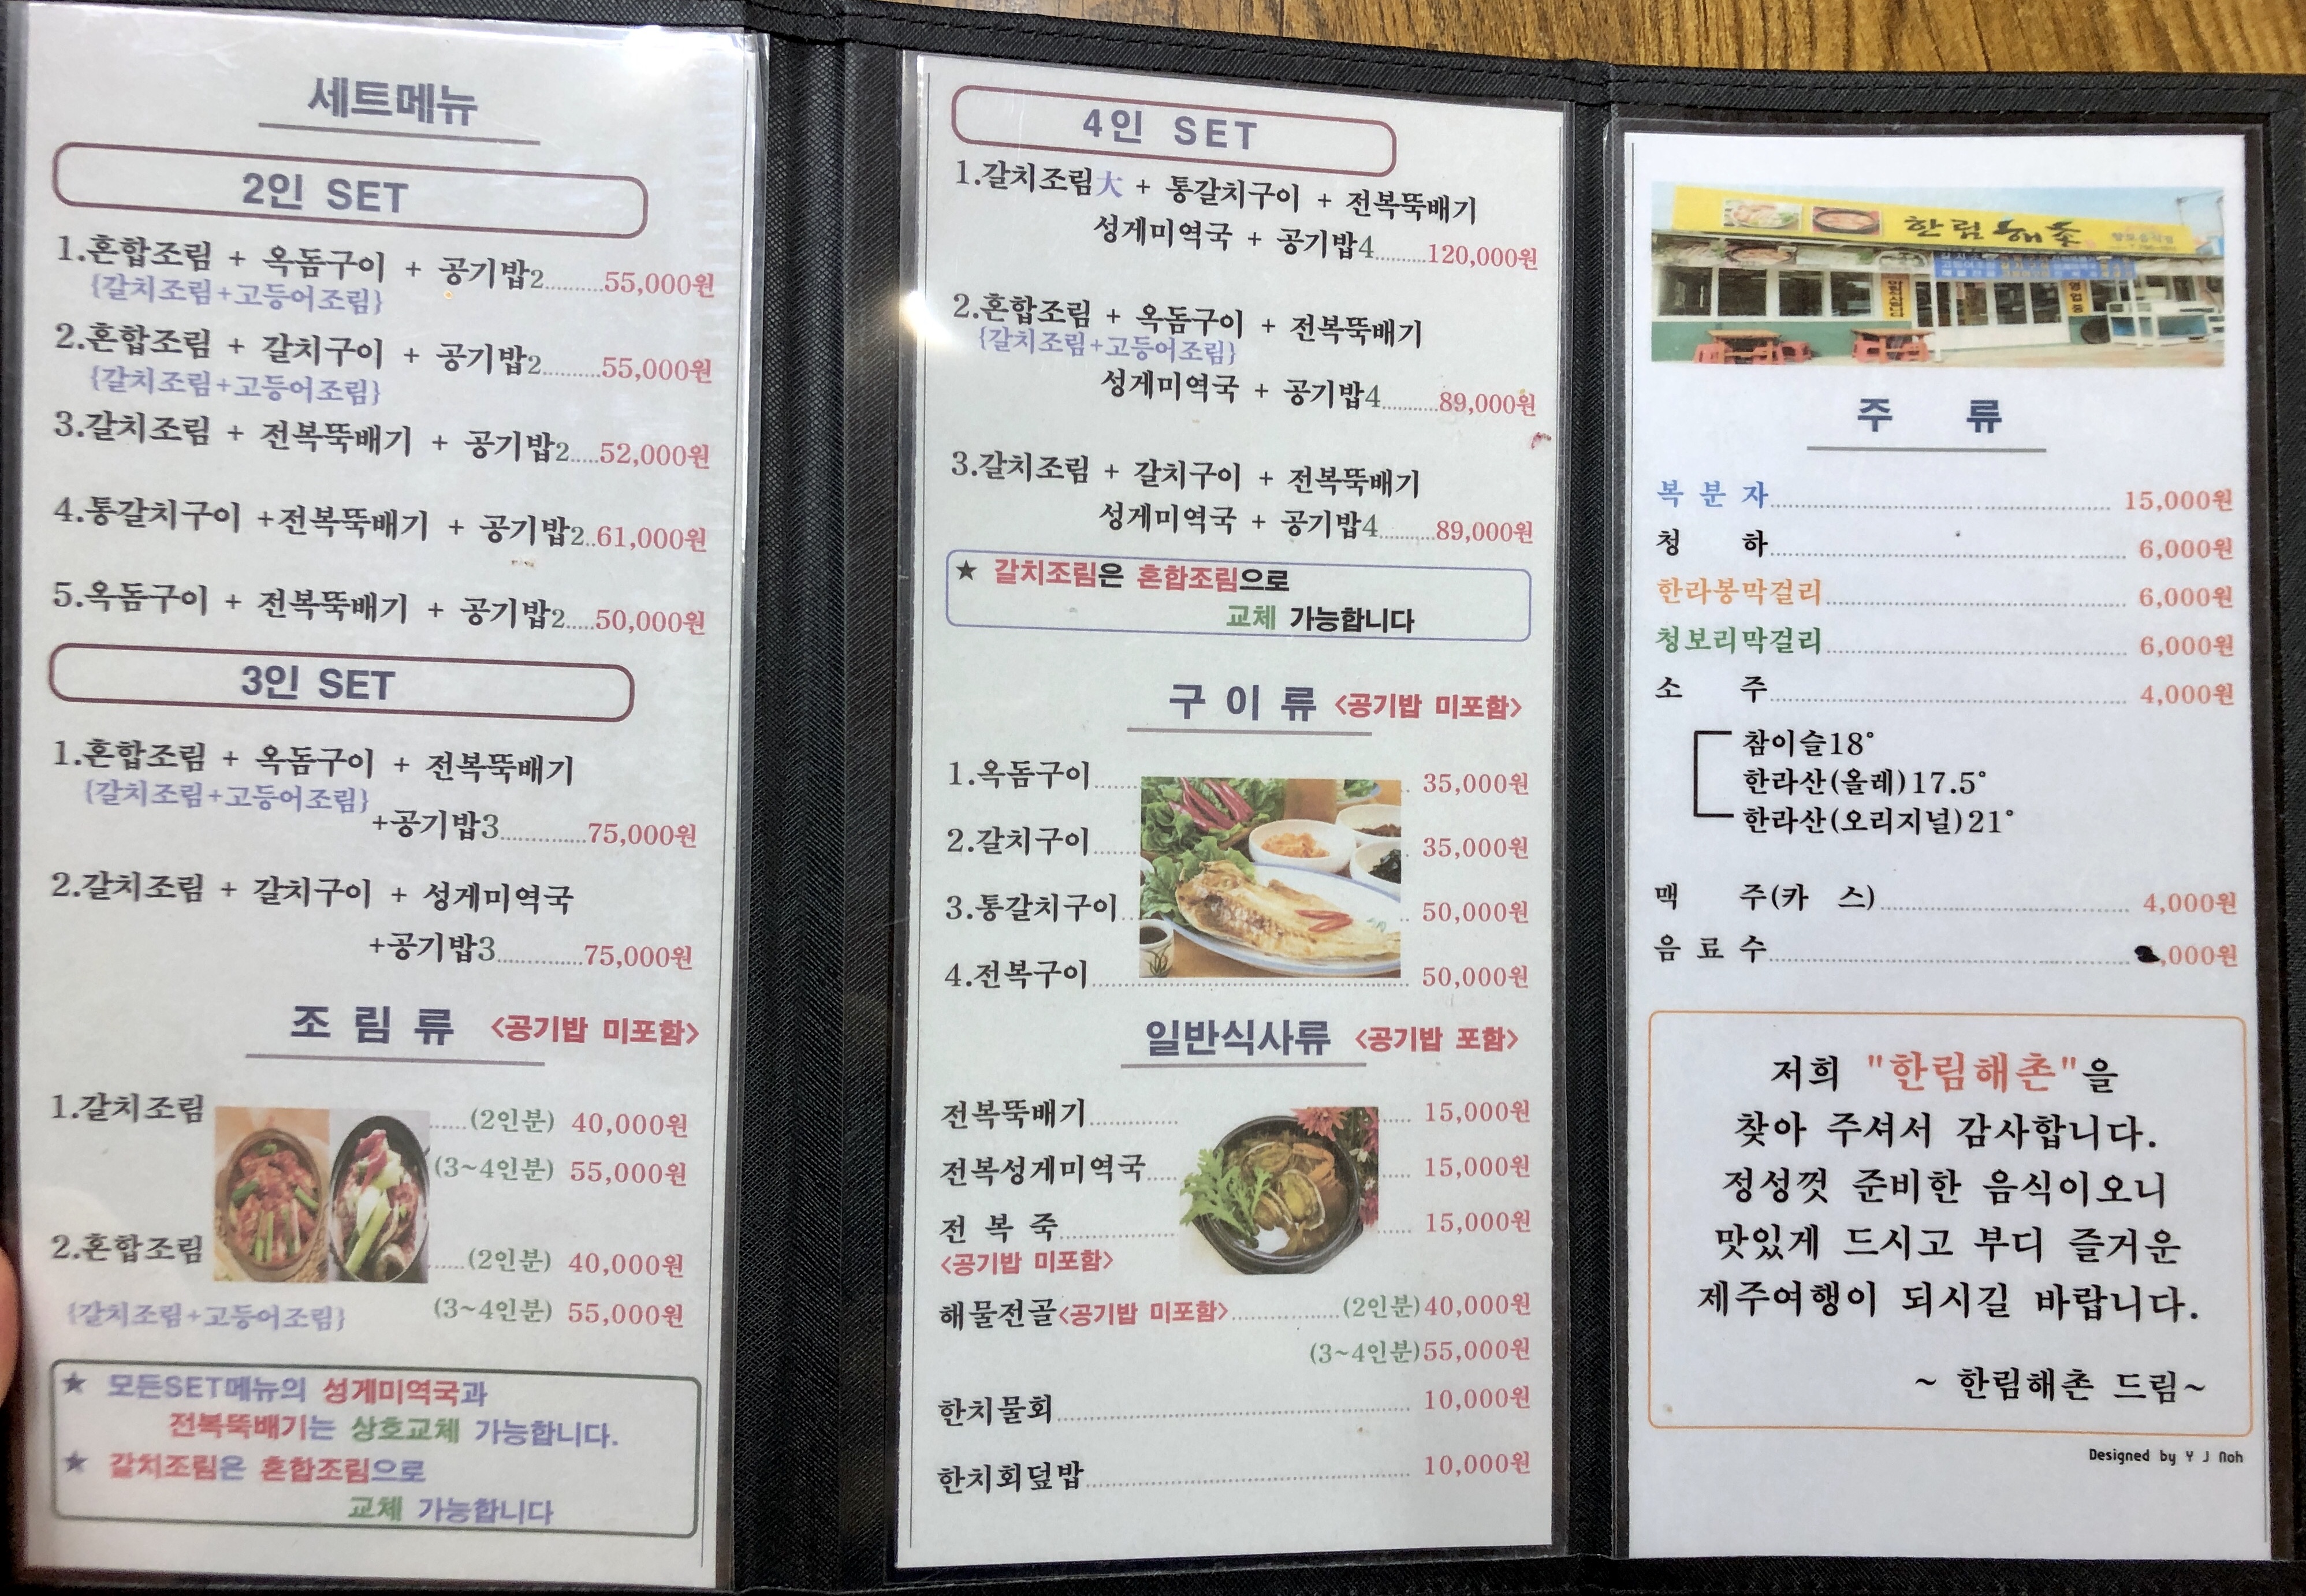 세트메뉴
2인 SET
1.혼합조림 + 옥돔구이 + 공기밥2.........55,000원
{갈치조림+고등어조림}
2.혼합조림 + 갈치구이 + 공기밥2.........55,000원
{갈치조림+고등어조림}
3.갈치조림 + 전복뚝배기 + 공기밥2.....52,000원
4.통갈치구이 +전복뚝배기 + 공기밥2..61,000원
5.옥돔구이 + 전복뚝배기 + 공기밥2.....50,000원
3인 SET
1.혼합조림 + 옥돔구이 + 전복뚝배기
{갈치조림+고등어조림}
+공기밥3.............75,000원
2.갈치조림 + 갈치구이 + 성게미역국
+공기밥3.............75,000원
조 림 류 <공기밥 미포함>
1.갈치조림 ......(2인분) 40,000원
(3~4인분) 55,000원
2.혼합조림 ......(2인분) 40,000원
{갈치조림+고등어조림} (3~4인분) 55,000원
★ 모든SET메뉴의 성게미역국과
전복뚝배기는 상호교체 가능합니다.
★ 갈치조림은 혼합조림으로
교체 가능합니다
4인 SET
1.갈치조림大 + 통갈치구이 + 전복뚝배기
성게미역국 + 공기밥4.........120,000원
2.혼합조림 + 옥돔구이 + 전복뚝배기
{갈치조림+고등어조림}
성게미역국 + 공기밥4..........89,000원
3.갈치조림 + 갈치구이 + 전복뚝배기
성게미역국 + 공기밥4..........89,000원
★ 갈치조림은 혼합조림으로
교체 가능합니다
구 이 류 <공기밥 미포함>
1.옥돔구이........ 35,000원
2.갈치구이........ 35,000원
3.통갈치구이.... 50,000원
4.전복구이.................................... 50,000원
일반식사류 <공기밥 포함>
전복뚝배기............... 15,000원
전복성게미역국......... 15,000원
전 복 죽.................... 15,000원
<공기밥 미포함>
해물전골<공기밥 미포함>................(2인분)40,000원
(3~4인분)55,000원
한치물회.......................................... 10,000원
한치회덮밥....................................... 10,000원
한림해촌
주 류
복 분 자.......................................... 15,000원
청 하............................................ 6,000원
한라봉막걸리................................... 6,000원
청보리막걸리................................... 6,000원
소 주............................................ 4,000원
참이슬18°
한라산(올레)17.5°
한라산(오리지널)21°
맥 주(카 스)................................ 4,000원
음 료 수.......................................... ,000원
저희 "한림해촌"을
찾아 주셔서 감사합니다.
정성껏 준비한 음식이오니
맛있게 드시고 부디 즐거운
제주여행이 되시길 바랍니다.
~ 한림해촌 드림~
Designed by Y J Noh